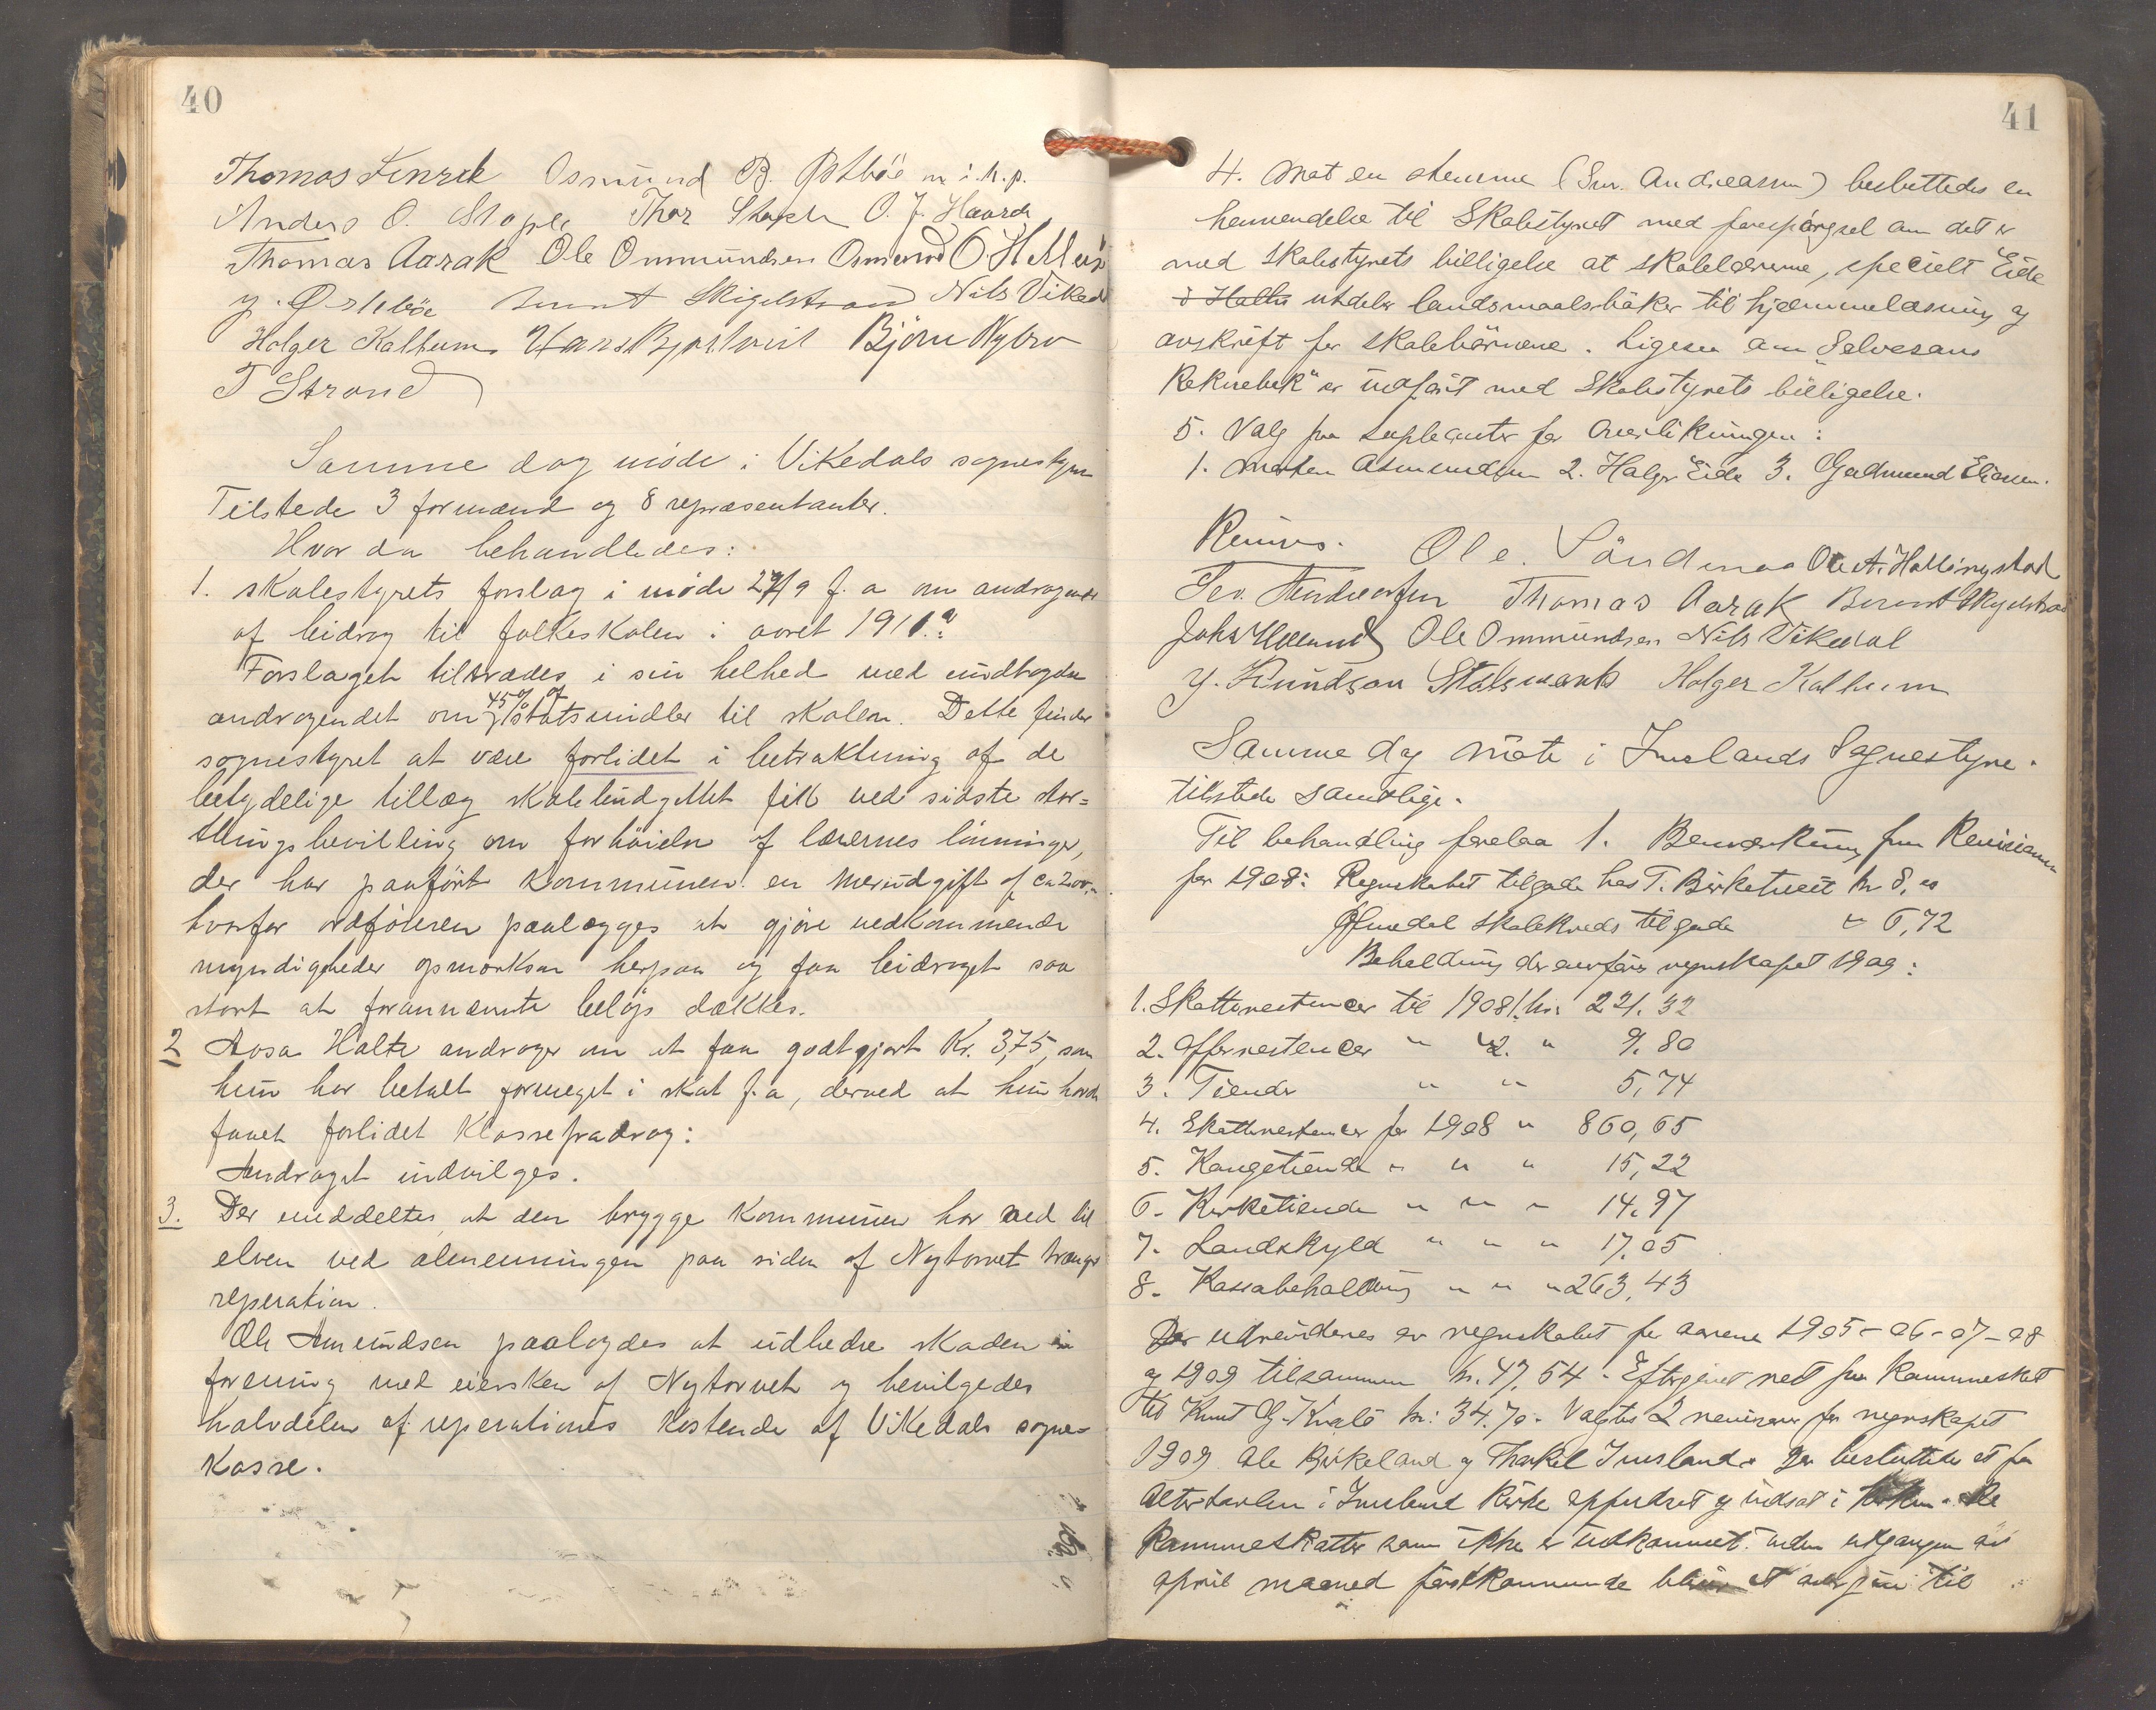 40
Thomas Osmund B. m. i. h. p.
Anders O. Stople Thor O. J. Haard
Thomas Aarak Ole Ommundsen Osmund O.
Y. Østebøe Berent Skigelstrand Nils Vikedal
Holger Kalheim Hans Bjørn Nybro
T Strand
Samme dag møde i Vikedals sognestyre
Tilstede 3 formænd og 8 repræsentanter.
Hvor da behandledes:
1. skolestyrets forslag i møde 27/9 f. a om andragende
af bidrag til folkeskolen i aaret 1911.
Forslaget tiltrædes i sin helhed med undtagelse
andragendet om 45% af statsmidler til skolen. Dette finder
sognestyret at være forlidet i betraktning af de
betydelige tillæg skolebudgettet fik ved sidste stor=
thingsbevilling om forhöielse af lærernes lönninger,
der har paafört Kommunen en merudgift af ca 200,-
hvorfor ordföreren paalægges at gjöre vedkommende
myndigheder opmerksom herpaa og faa bidraget saa
stort at forannævnte belöp dækkes.
2 Aosa Halte andrager om at faa godtgjort Kr. 3,75, som
hun har betalt formeget i skat f. a, derved at hun havde
faaet forlidet Klassefradrag:
Andraget indvilges.
3. Der meddeltes at den brygge Kommunen har ned til
elven ved almenningen paa siden af Nytorvet trænger
reperation.
Ole Amundsen paalagdes at udbedre skaden i
forening med eiersken af Nytorvet og bevilgedes
halvdelen af reperationes kostende af Vikedals sogne=
Kasse.
41
4. Mot en stemme (Sev. Andreassen) besluttedes en
henvendelse til Skolestyret med forespørgsel om det er
med skolestyrets billigelse at skolelærerne, specielt Eide
utdeler landsmaalsbøker til hjemmelæsning og
avskrift for skolebørnene. Ligesaa om Selvesans
Reknebok" er indført med Skolestyrets billigelse.
5. Valg paa supleanter for Overlikningen:
1. Morten Asmundsen 2. Holger Eide 3. Gudmund Eliassen.
Ole. Söndenaa Ole A. Hallingstad
Sev. Andreassen Thomas Aarak Berent Skigelstrand
John Ole Ommundsen Nils Vikedal
Y. Knudson Stølsmark Holger Kalheim
Samme dag møte i Imslands Sognestyre.
tilstede samtlige.
Til behandling forelaa 1. Bemærkning fra Revisionen
for 1908: Regnskabet tilgode hos T. Birketveit kr 8,
Ølmedal skolekreds tilgode " 6,72
Beholdning der overføres regnskapet 1909:
1. Skatterestancer til 1908 kr: 221. 32
2. Offerrestencer " " 9. 80
3. Tiende " " 5,74
4. Skatterestancer for 1908 " 860,65
5. Kongetiende " " " 15,22
6. Kirketiende " " " 14.97
7. Landskyld " " " 17,05
8. Kassabeholdning " " " 263,43
Der udreideres av regnskabet for aarene 1905-06-07-08
og 1909 tilsammen kr. 47,54. Eftergivet ned paa Kommuneskat
til Knut G. Kvalø kr: 34.70. Valgtes 2 revisorer for regnskapet
1909 Ole Birkeland og Thorkel Imsland. Der besluttedes at faa
Altertavlen i Imsland Kirke oppudset og indsat i Kirken. De
Kommuneskatter som ikke er indkommet inden utgangen av
april maaned førstkommende blir at overgive til